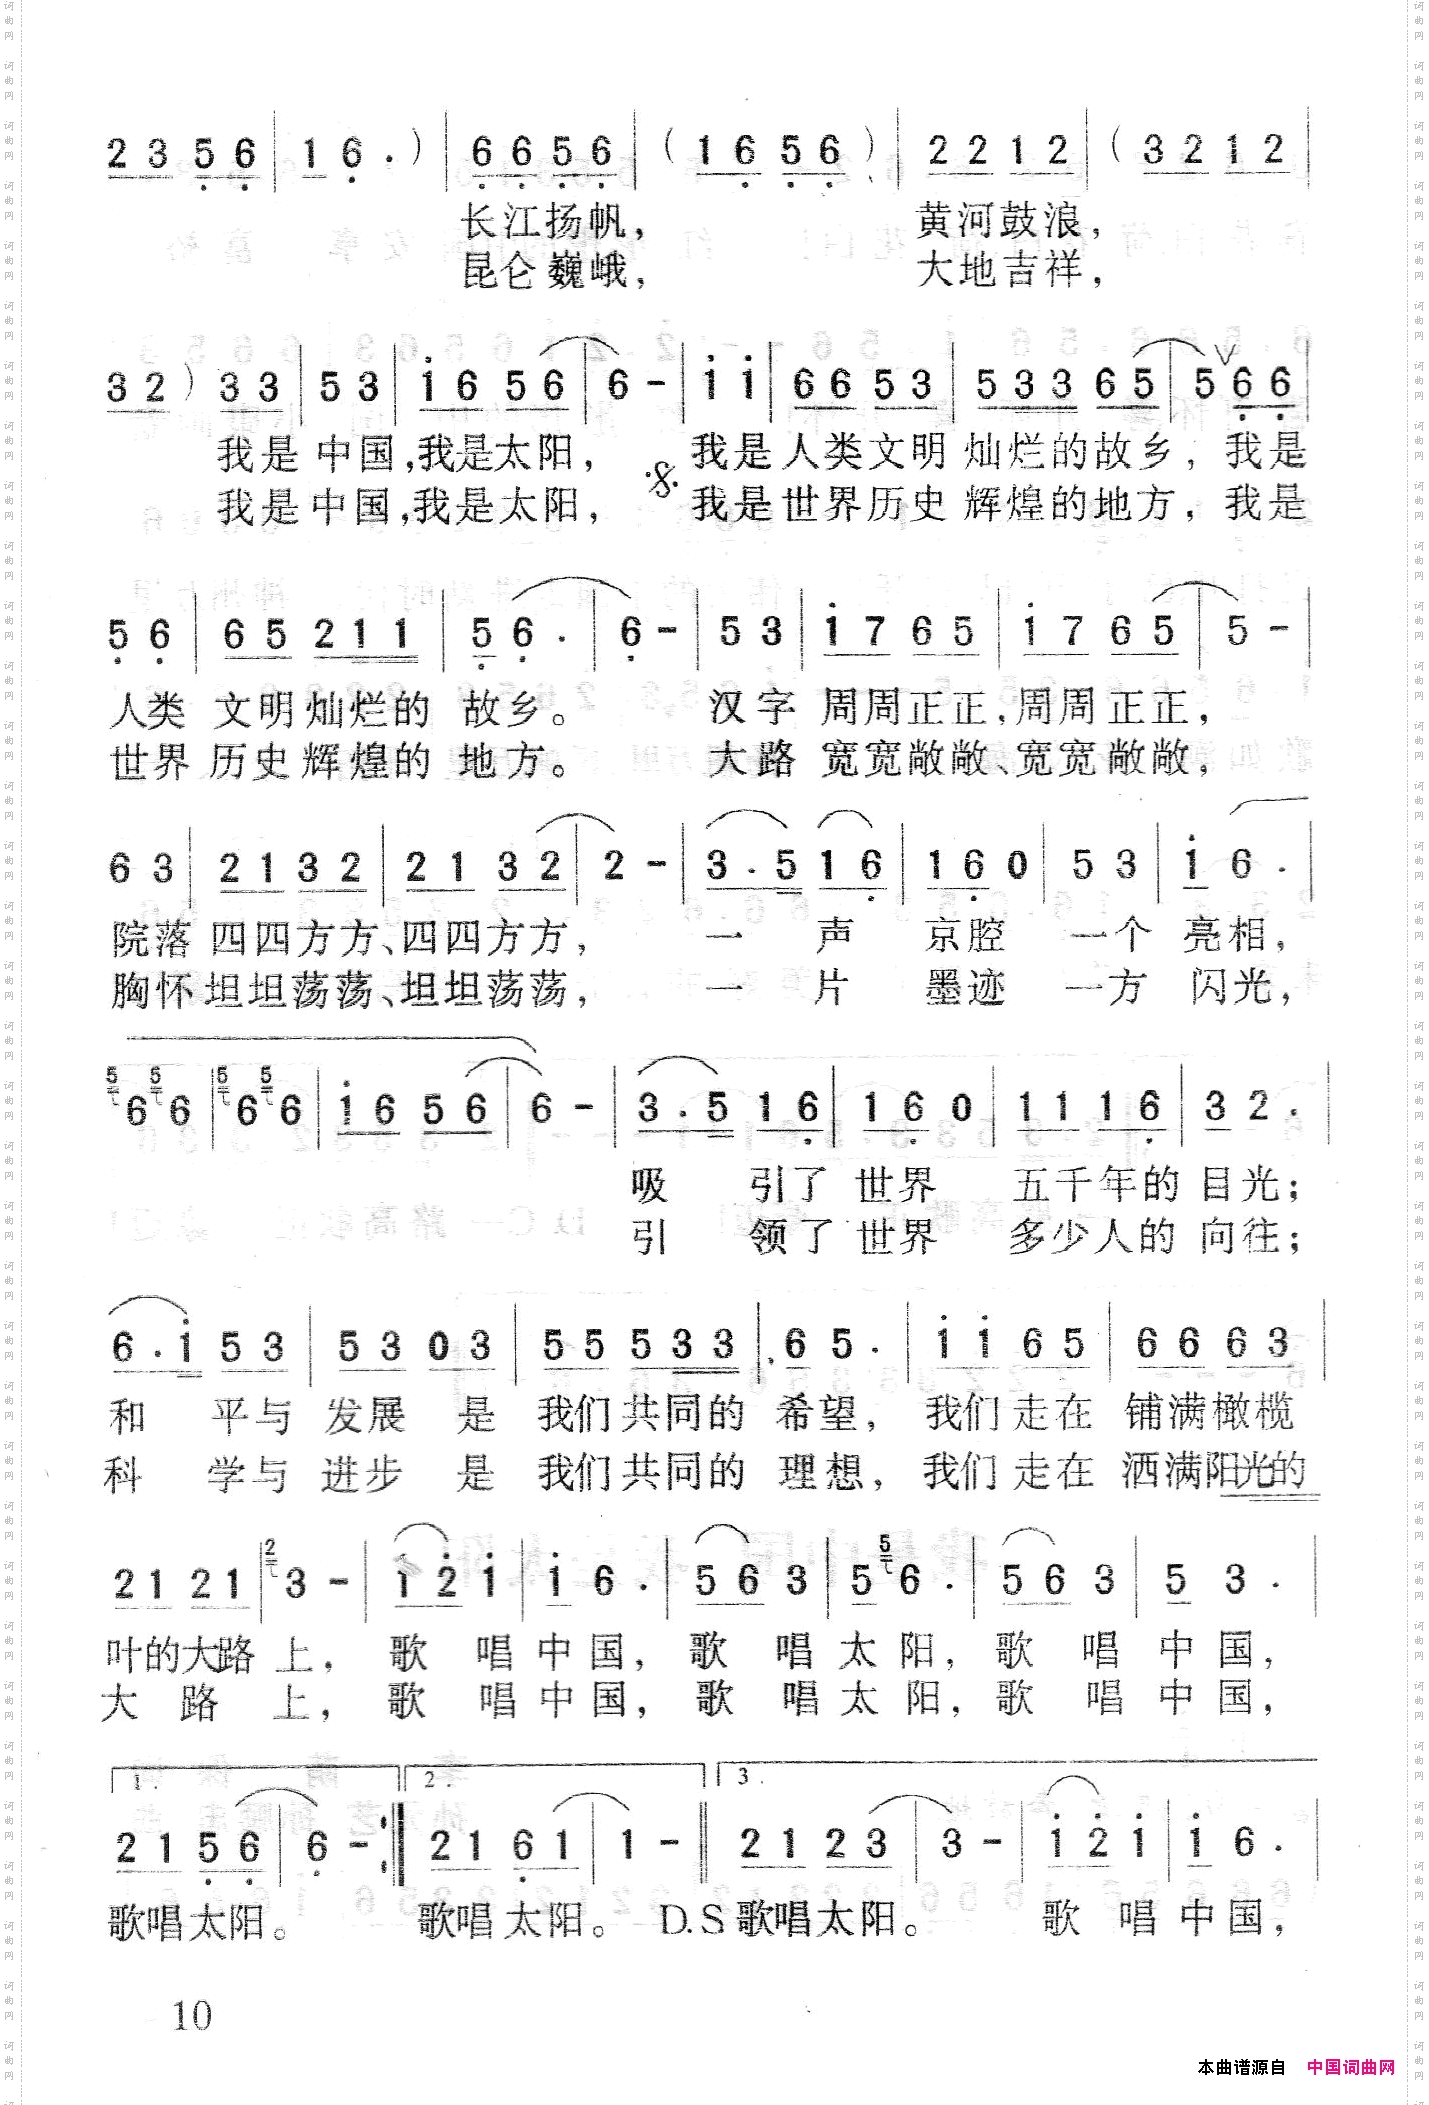 2 3 5 6 | 1 6 · ) | 6 6 5 6 | ( 1 6 5 6 ) | 2 2 1 2 | ( 3 2 1 2 |
长江扬帆， 黄河鼓浪，
昆仑巍峨， 大地吉祥，
3 2 ) 3 3 | 5 3 | i 6 5 6 | 6 - | i i | 6 6 5 3 | 5 3 3 6 5 | 5 6 6 |
我是 中国，我是太阳， 我是人类文明 灿烂的故乡，我是
我是中国，我是太阳， 我是世界历史 辉煌的地方，我是
5 6 | 6 5 2 1 1 | 5 6 · | 6 - | 5 3 | i 7 6 5 | i 7 6 5 | 5 - |
人类 文明灿烂的 故乡。 汉字 周周正正，周周正正，
世界 历史辉煌的 地方。 大路 宽宽敞敞、宽宽敞敞，
6 3 | 2 1 3 2 | 2 1 3 2 | 2 - | 3 · 5 1 6 | 1 6 0 | 5 3 | i 6 · |
院落 四四方方、四四方方， 一 声 京腔 一个 亮相，
胸怀 坦坦荡荡、坦坦荡荡， 一 片 墨迹 一方 闪光，
5 6 5 6 | 5 6 5 6 | i 6 5 6 | 6 - | 3 · 5 1 6 | 1 6 0 | 1 1 1 6 | 3 2 · |
吸 引了 世界 五千年的 目光；
引 领了 世界 多少人的 向往；
6 · i 5 3 | 5 3 0 3 | 5 5 5 3 3 | 6 5 · | i i 6 5 | 6 6 6 3 |
和 平与 发展 是 我们共同的 希望， 我们走在 铺满橄榄
科 学与 进步 是 我们共同的 理想， 我们走在 洒满阳光的
2 1 2 1 | 2 3 - | i 2 i | i 6 · | 5 6 3 | 5 5 6 · | 5 6 3 | 5 3 · |
叶的大路 上， 歌 唱 中国， 歌 唱 太阳， 歌 唱 中国，
大 路 上， 歌 唱 中国， 歌 唱 太阳， 歌 唱 中国，
1. 2. 3.
2 1 5 6 | 6 - :| 2 1 6 1 | 1 - || 2 1 2 3 | 3 - | i 2 i | i 6 · |
歌唱太阳。 歌唱太阳。 D.S 歌唱太阳。 歌 唱 中国，
10
本曲谱源自 中国词曲网